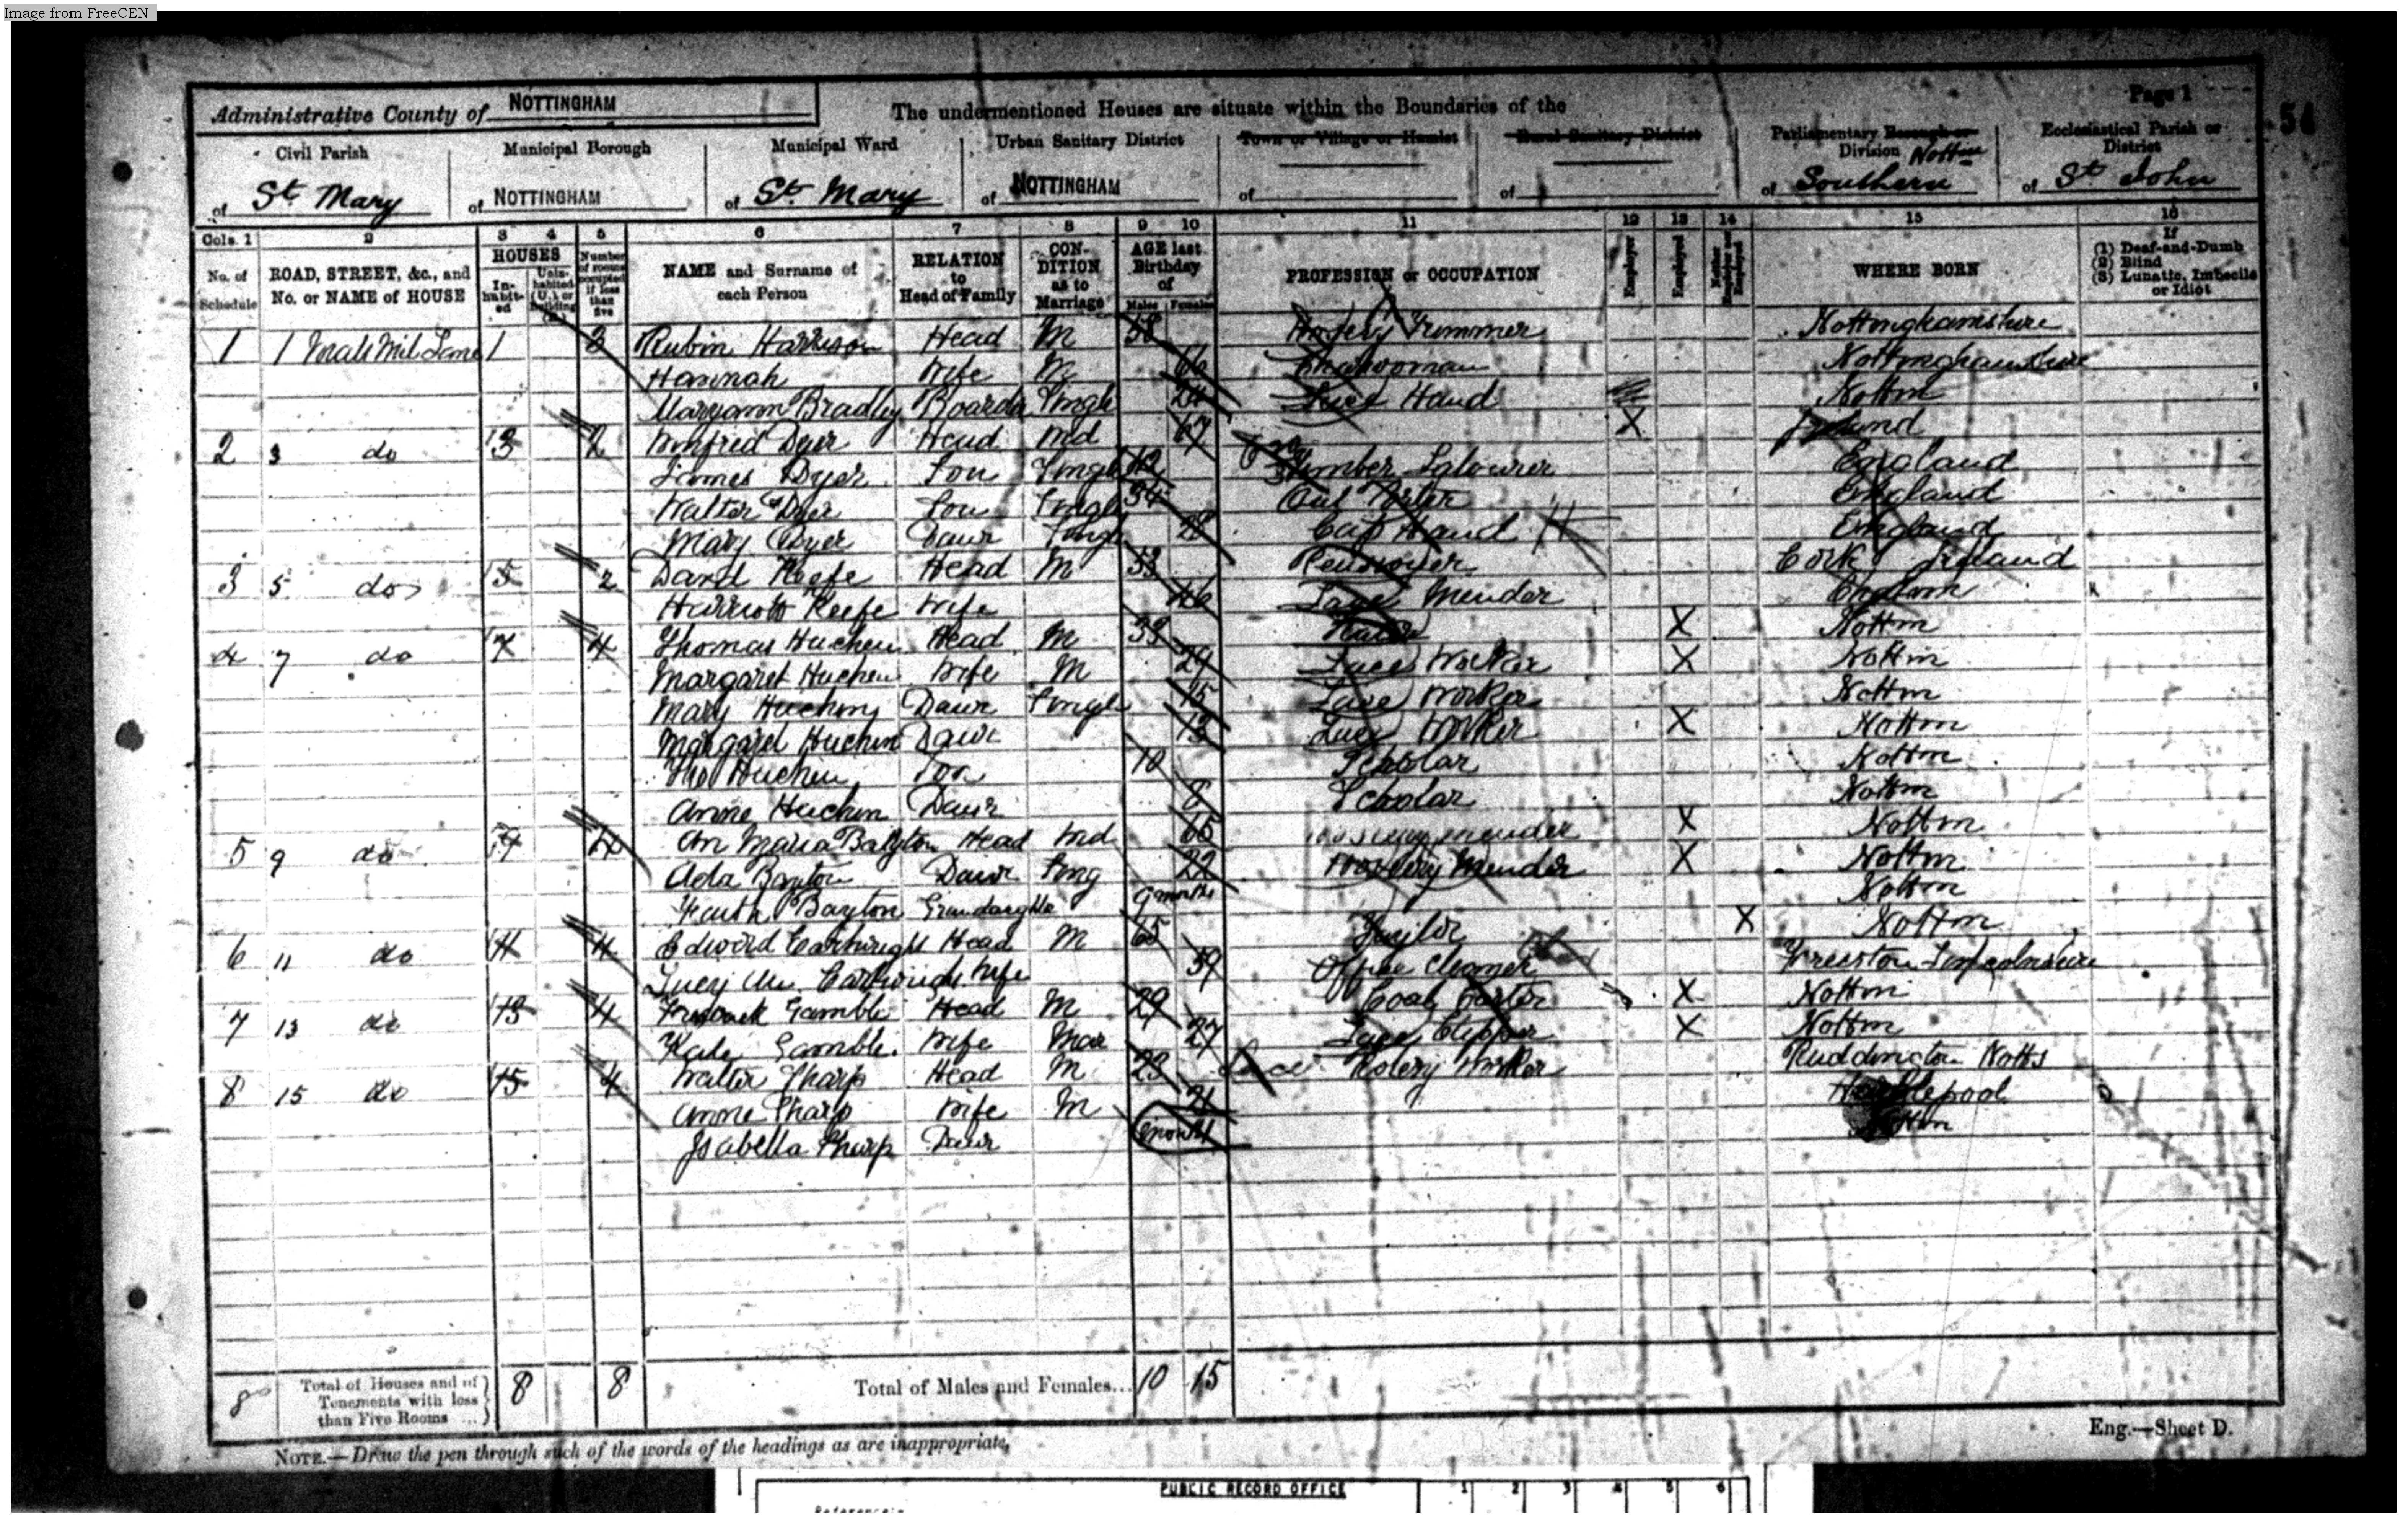 Image from FreeCEN
Page 1
54
Administrative County of NOTTINGHAM
The undermentioned Houses are situate within the Boundaries of the
Civil Parish
of St. Mary
Municipal Borough
of NOTTINGHAM
Municipal Ward
of St. Mary
Urban Sanitary District
of NOTTINGHAM
Town or Village or Hamlet
of
Rural Sanitary District
of
Parliamentary Borough or
Division Nottm
of Southern
Ecclesiastical Parish or
District
of St John
Cols. 1 2 3 4 5 6 7 8 9 10 11 12 13 14 15 16
No. of Schedule
ROAD, STREET, &c., and No. or NAME of HOUSE
HOUSES
In-habit-ed
Unin-habited (U.) or Building (B.)
Number of rooms occupied if less than five
NAME and Surname of each Person
RELATION to Head of Family
CON-DITION as to Marriage
AGE last Birthday of
Males Females
PROFESSION or OCCUPATION
Employer
Employed
Neither Employer nor Employed
WHERE BORN
If
(1) Deaf-and-Dumb
(2) Blind
(3) Lunatic, Imbecile or Idiot
1 1 Lane 1 3 Rubin Harrison Head M 58 Trimmer Nottinghamshire
Hannah Wife M 66 Charwoman Nottinghamshire
Maryann Bradley Boarder Single 24 Lace Hand Nottm
2 3 do 3 2 Winfred Dyer Head Wd 67 X Ireland
James Dyer Son Single 42 Timber Labourer England
Walter Dyer Son Single 34 Out Porter England
Mary Dyer Daur Single 28 Cap Hand England
3 5 do 5 2 David Keefe Head M 53 Pensioner Cork Ireland
Harriott Keefe Wife 46 Lace Mender Chatham
4 7 do 7 4 Thomas Huchin Head M 33 X Nottm
Margaret Huchin Wife M 29 Lace Worker X Nottm
Mary Huchin Daur Single 15 Lace Worker Nottm
Margaret Huchin Daur 13 Lace Worker X Nottm
Tho Huchin Son 10 Scholar Nottm
Anne Huchin Daur 8 Scholar Nottm
5 9 do 9 4 An Maria Bayton Head Wd 65 Hosiery Mender X Nottm
Ada Bayton Daur Sing 22 Hosiery Mender X Nottm
Bayton Grandaughter 9 months Nottm
6 11 do 11 4 Edward Cartwright Head M 65 Taylor X Nottm
Lucy An Cartwright Wife 59 Office Cleaner Lincolnshire
7 13 do 13 4 Fredrick Gamble Head M 29 Coal Carter X Nottm
Kate Gamble Wife Mar 27 Lace Clipper X Nottm
8 15 do 15 4 Walter Sharp Head M 23 Lace Worker Ruddington Notts
Anne Sharp Wife M 21 Hartlepool
Isabella Sharp Daur months Nottm
8 Total of Houses and of Tenements with less than Five Rooms ... 8 8 Total of Males and Females... 10 15
NOTE.—Draw the pen through such of the words of the headings as are inappropriate.
Eng.—Sheet D.
PUBLIC RECORD OFFICE 1 2 3 4 5 6